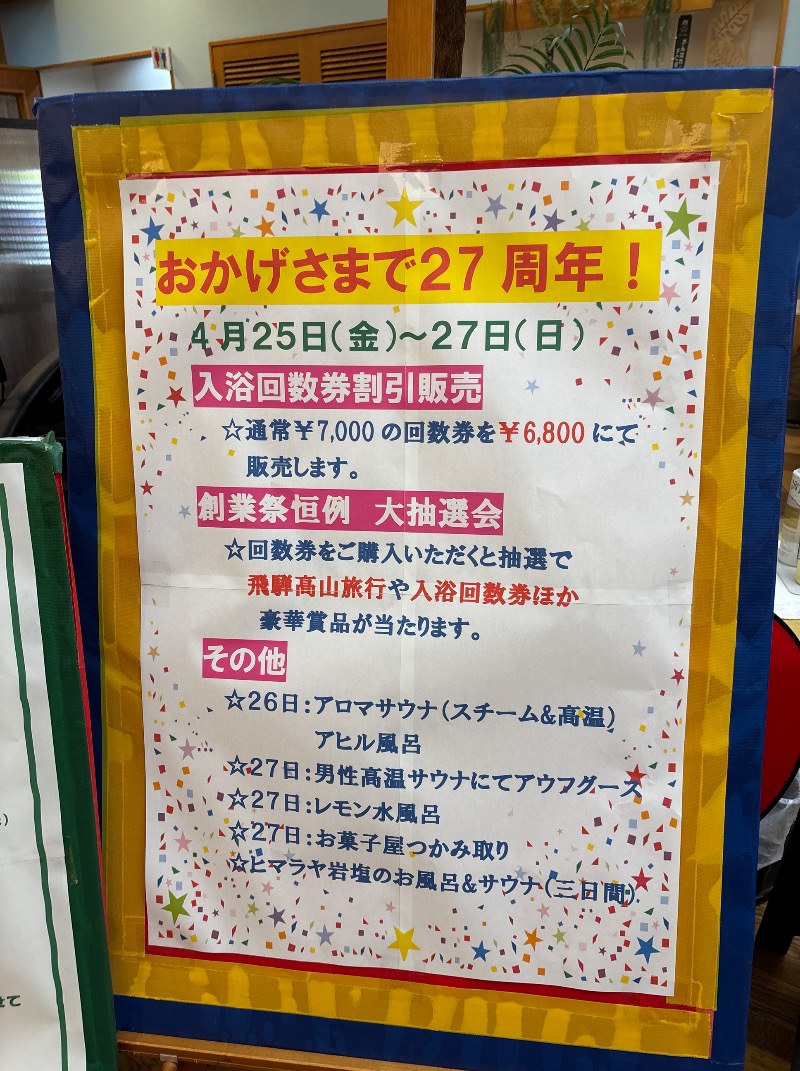 おかげさまで27周年！
4月25日(金)～27日(日)
入浴回数券割引販売
☆通常￥7,000の回数券を￥6,800にて
販売します。
創業祭恒例　大抽選会
☆回数券をご購入いただくと抽選で
飛騨高山旅行や入浴回数券ほか
豪華賞品が当たります。
その他
☆26日:アロマサウナ(スチーム&高温)
アヒル風呂
☆27日:男性高温サウナにてアウフグース
☆27日:レモン水風呂
☆27日:お菓子屋つかみ取り
☆ヒマラヤ岩塩のお風呂&サウナ(三日間)